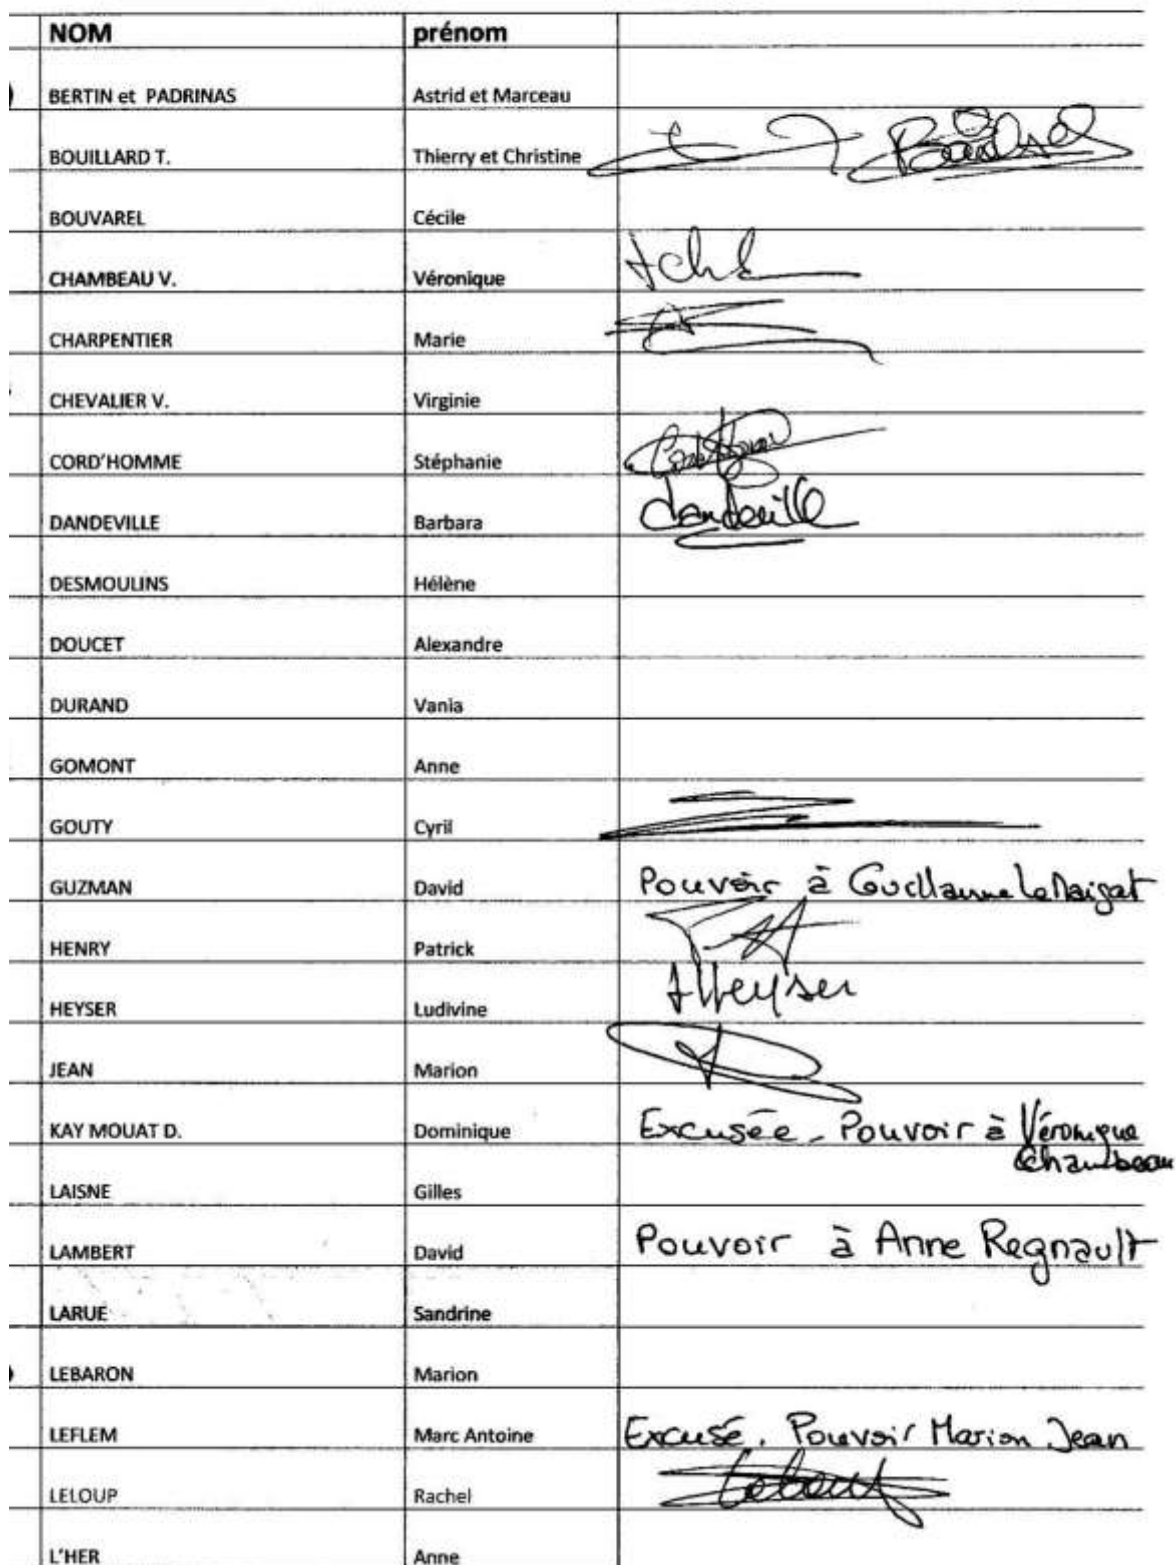 NOM prénom
BERTIN et PADRINAS Astrid et Marceau
BOUILLARD T. Thierry et Christine
BOUVAREL Cécile
CHAMBEAU V. Véronique
CHARPENTIER Marie
CHEVALIER V. Virginie
CORD'HOMME Stéphanie
DANDEVILLE Barbara dandeville
DESMOULINS Hélène
DOUCET Alexandre
DURAND Vania
GOMONT Anne
GOUTY Cyril
GUZMAN David Pouvoir à Guillaume
HENRY Patrick
HEYSER Ludivine Heyser
JEAN Marion
KAY MOUAT D. Dominique Excusée - Pouvoir à Véronique
Chambeau
LAISNE Gilles
LAMBERT David Pouvoir à Anne Regnault
LARUE Sandrine
LEBARON Marion
LEFLEM Marc Antoine Excusé. Pouvoir Marion Jean
LELOUP Rachel
L'HER Anne